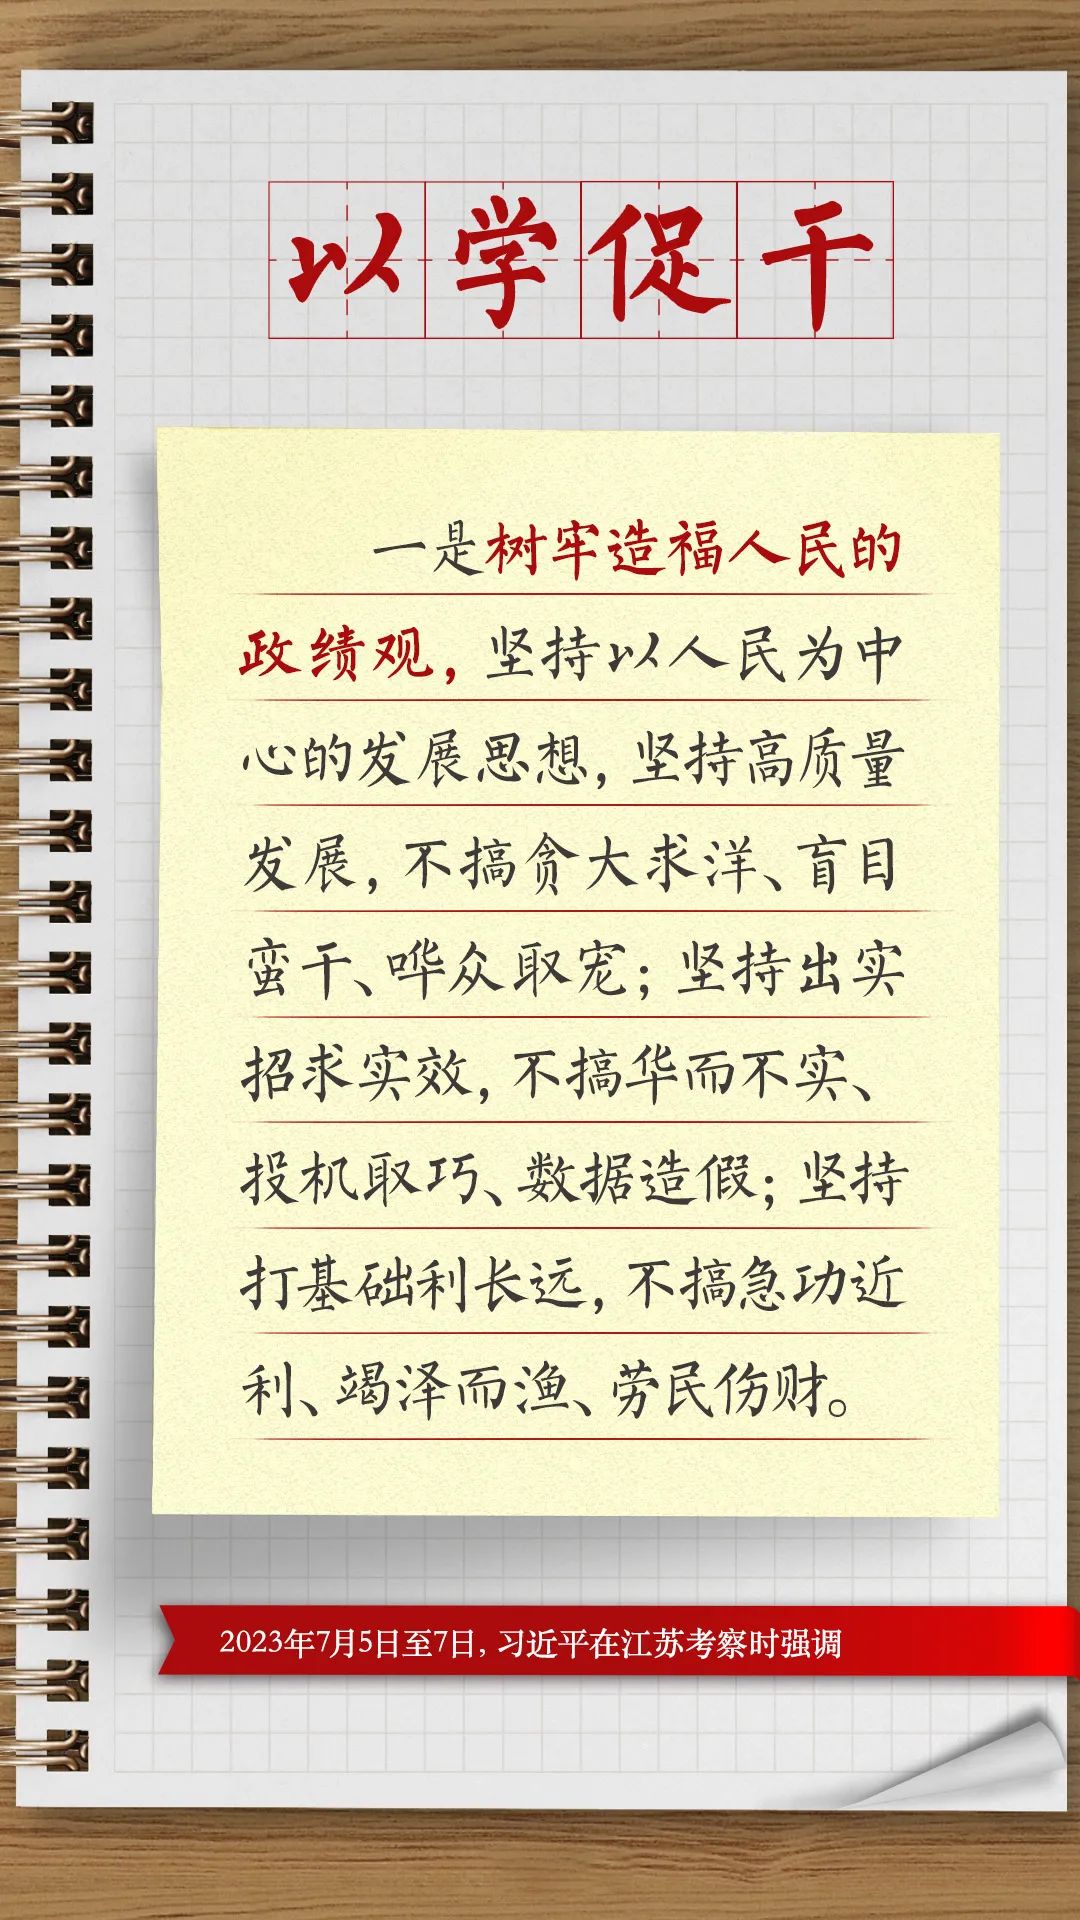 以学促干
一是树牢造福人民的
政绩观，坚持以人民为中
心的发展思想，坚持高质量
发展，不搞贪大求洋、盲目
蛮干、哗众取宠；坚持出实
招求实效，不搞华而不实、
投机取巧、数据造假；坚持
打基础利长远，不搞急功近
利、竭泽而渔、劳民伤财。
2023年7月5日至7日，习近平在江苏考察时强调